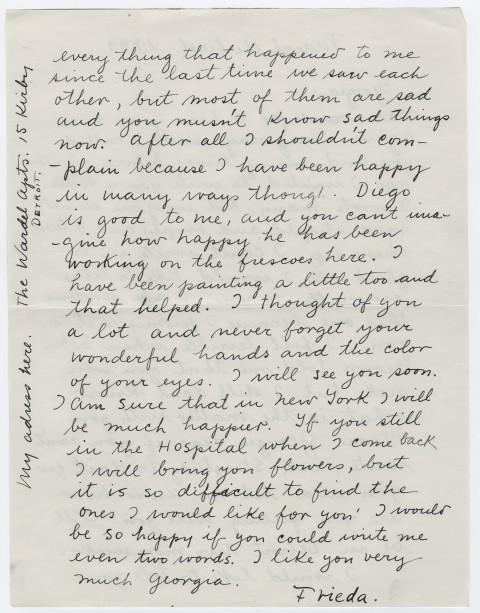 every thing that happened to me
since the last time we saw each
other, but most of them are sad
and you musn't know sad things
now. After all I shouldn't com-
-plain because I have been happy
in many ways though. Diego
is good to me, and you can't ima-
-gine how happy he has been
working on the frescoes here. I
have been painting a little too and
that helped. I thought of you
a lot and never forget your
wonderful hands and the color
of your eyes. I will see you soon.
I am sure that in New York I will
be much happier. If you still
in the Hospital when I come back
I will bring you flowers, but
it is so difficult to find the
ones I would like for you. I would
be so happy if you could write me
even two words. I like you very
much Georgia.
Frieda.
My adress here. The Wardel Apts. 15 Kirby
DETROIT.